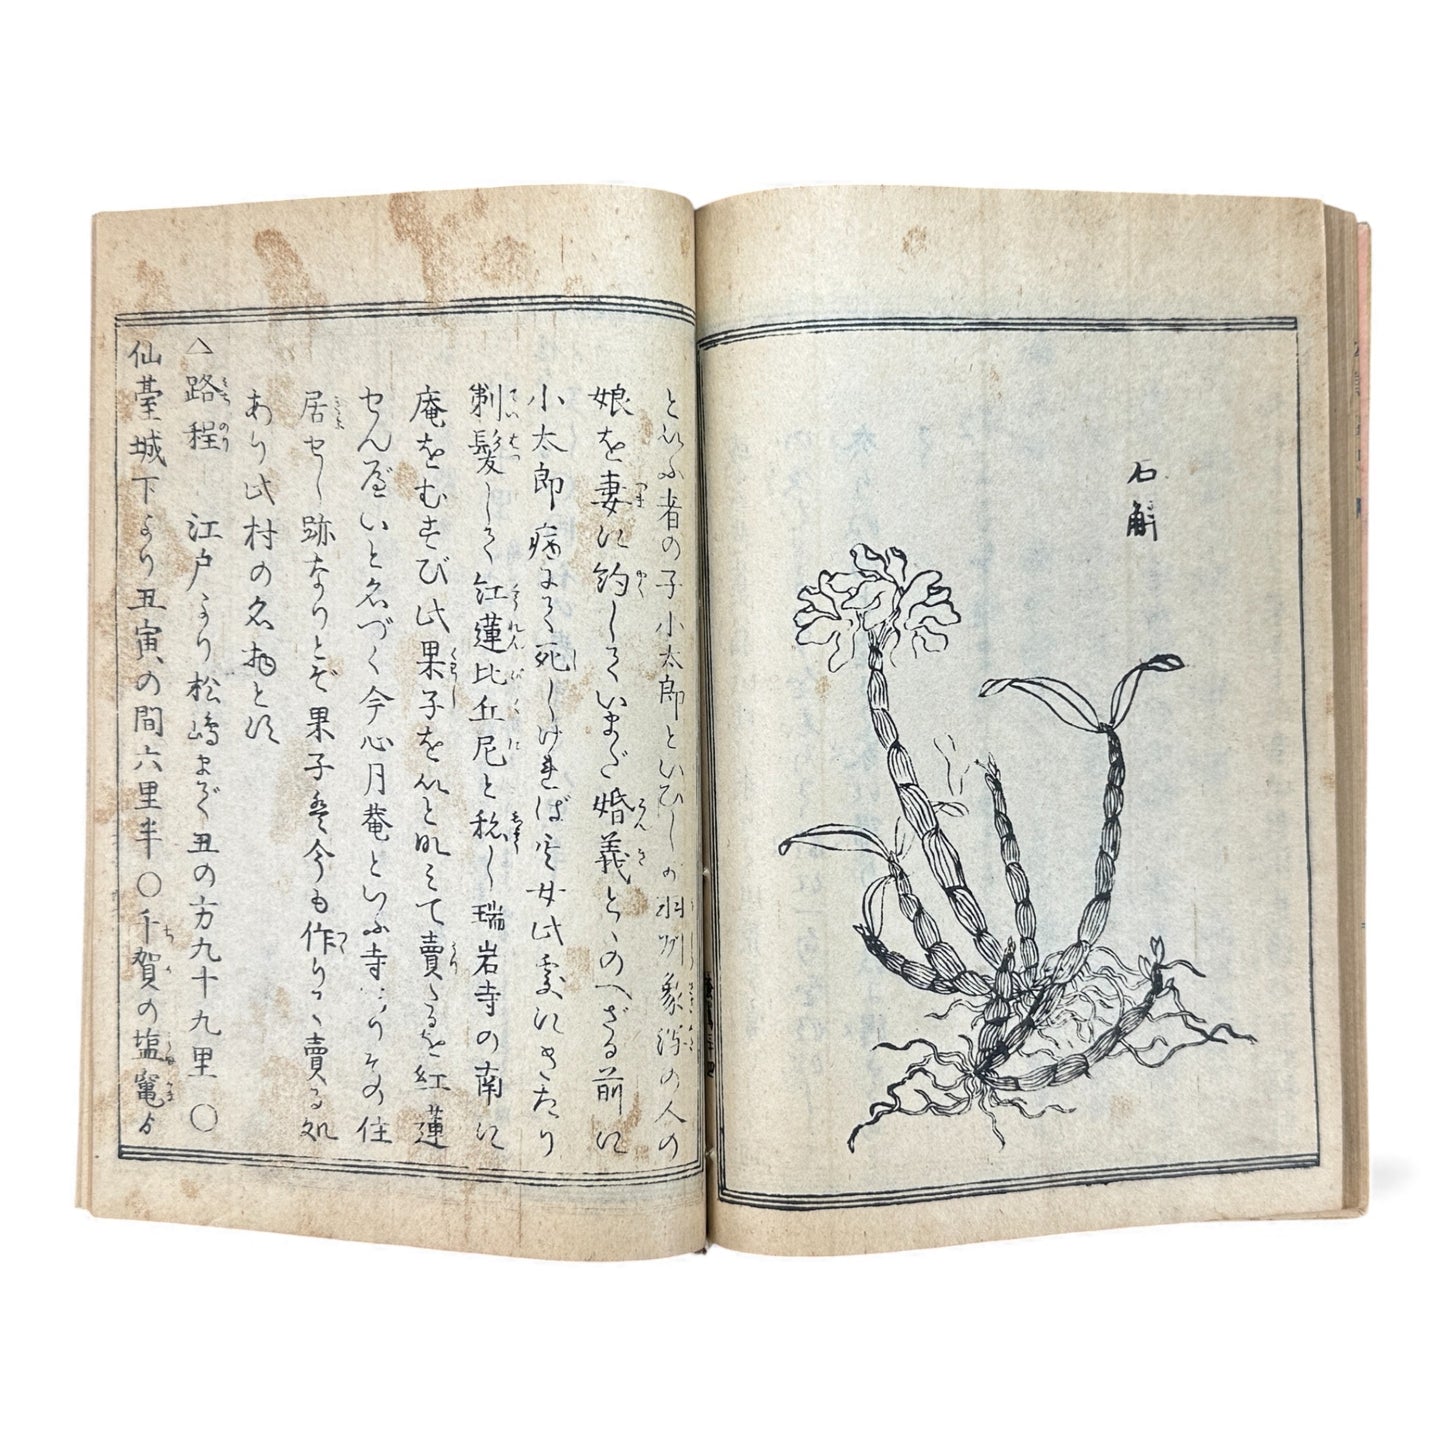 石斛
といふ者の子小太郎といひしが羽州象潟の人の
娘を妻に約していまだ婚義とゝのへざる前に
小太郎病にて死しければ其女此處にきたり
剃髪して紅蓮比丘尼と稱し瑞岩寺の南に
庵をむすび此果子を以と肌えて賣たるを紅蓮
せんべいと名づく今心月菴といふ寺ありその住
居せし跡なりとぞ果子は今も作りて賣る処
あり此村の名物とす
△路程 江戸より松嶋まで丑の方九十九里 〇
仙臺城下より丑寅の間六里半〇千賀の塩竃より